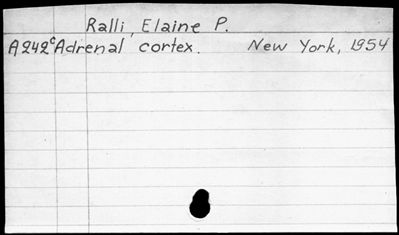 Ralli, Elaine P.
A242ᶜ Adrenal cortex. New York, 1954